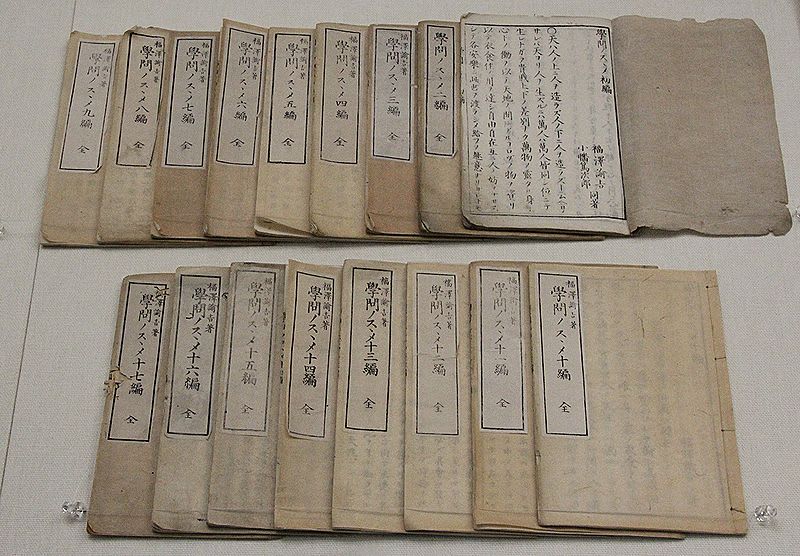 學問ノスヽメ初編
福澤諭吉
小幡篤次郎
同著
○天ハ人ノ上ニ人ヲ造ラズ人ノ下ニ人ヲ造ラズト云ヘリ
サレバ天ヨリ人ヲ生ズルニハ萬人ハ萬人皆同ジ位ニシテ
生レナガラ貴賤上下ノ差別ナク萬物ノ靈タル身ト
心トノ働ヲ以テ天地ノ間ニアルヨロヅノ物ヲ資リ
以テ衣食住ノ用ヲ達シ自由自在互ニ人ノ妨ヲナサズ
シテ各安樂ニ此世ヲ渡ラシメ給フノ趣意ナリ
福澤諭吉著
學問ノスヽメ二編 全
福澤諭吉著
學問ノスヽメ三編 全
福澤諭吉著
學問ノスヽメ四編 全
福澤諭吉著
學問ノスヽメ五編 全
福澤諭吉著
學問ノスヽメ六編 全
福澤諭吉著
學問ノスヽメ七編 全
福澤諭吉著
學問ノスヽメ八編 全
福澤諭吉著
學問ノスヽメ九編 全
福澤諭吉著
學問ノスヽメ十編 全
福澤諭吉著
學問ノスヽメ十一編 全
福澤諭吉著
學問ノスヽメ十二編 全
福澤諭吉著
學問ノスヽメ十三編 全
福澤諭吉著
學問ノスヽメ十四編 全
福澤諭吉著
學問ノスヽメ十五編 全
福澤諭吉著
學問ノスヽメ十六編 全
福澤諭吉著
學問ノスヽメ十七編 全